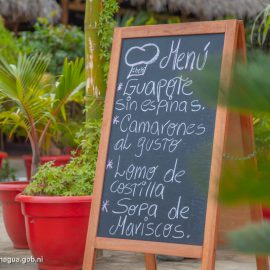 Menú
chefs
* Guapote
sin espinas.
* Camarones
al gusto
* Lomo de
costilla
* Sopa de
Mariscos.
nagua.gob.ni